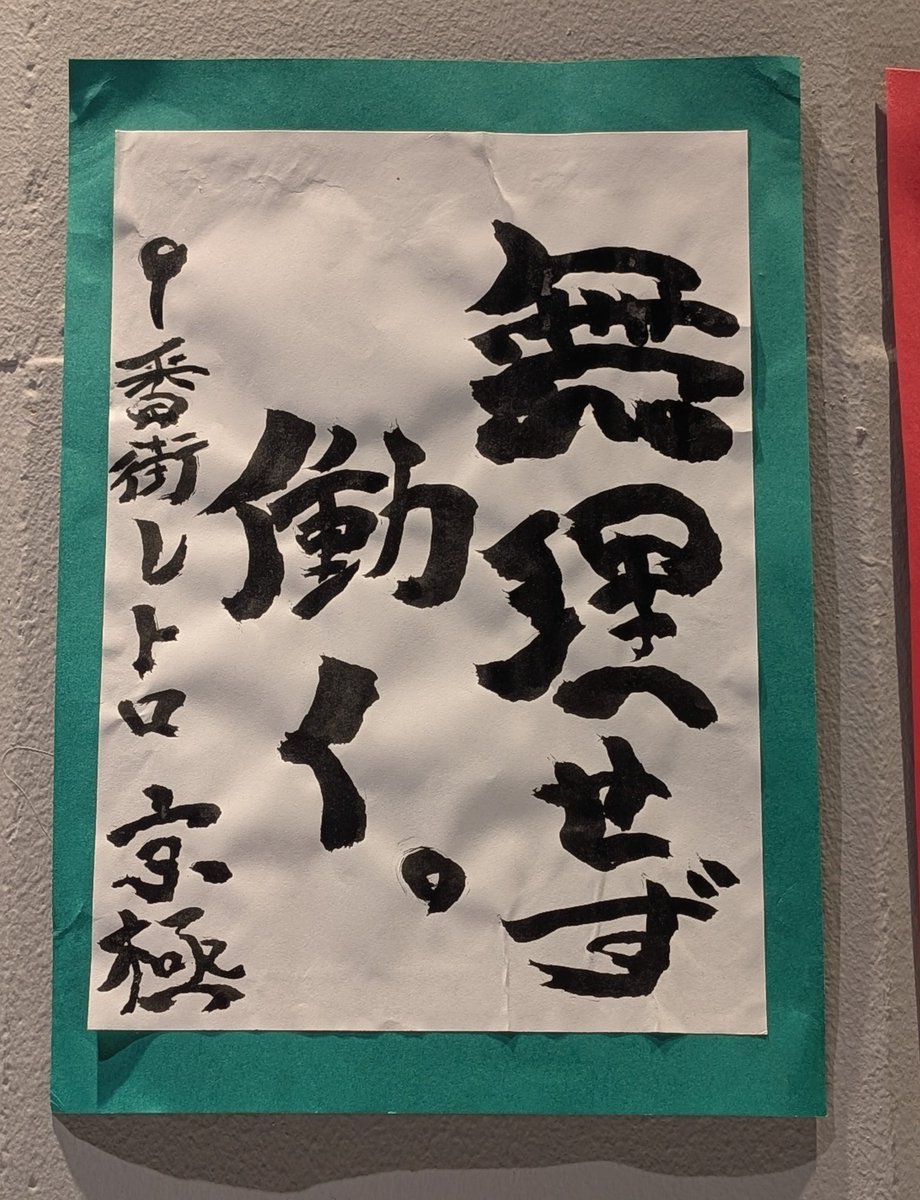 無理せず
働く。
9番街レトロ 京極